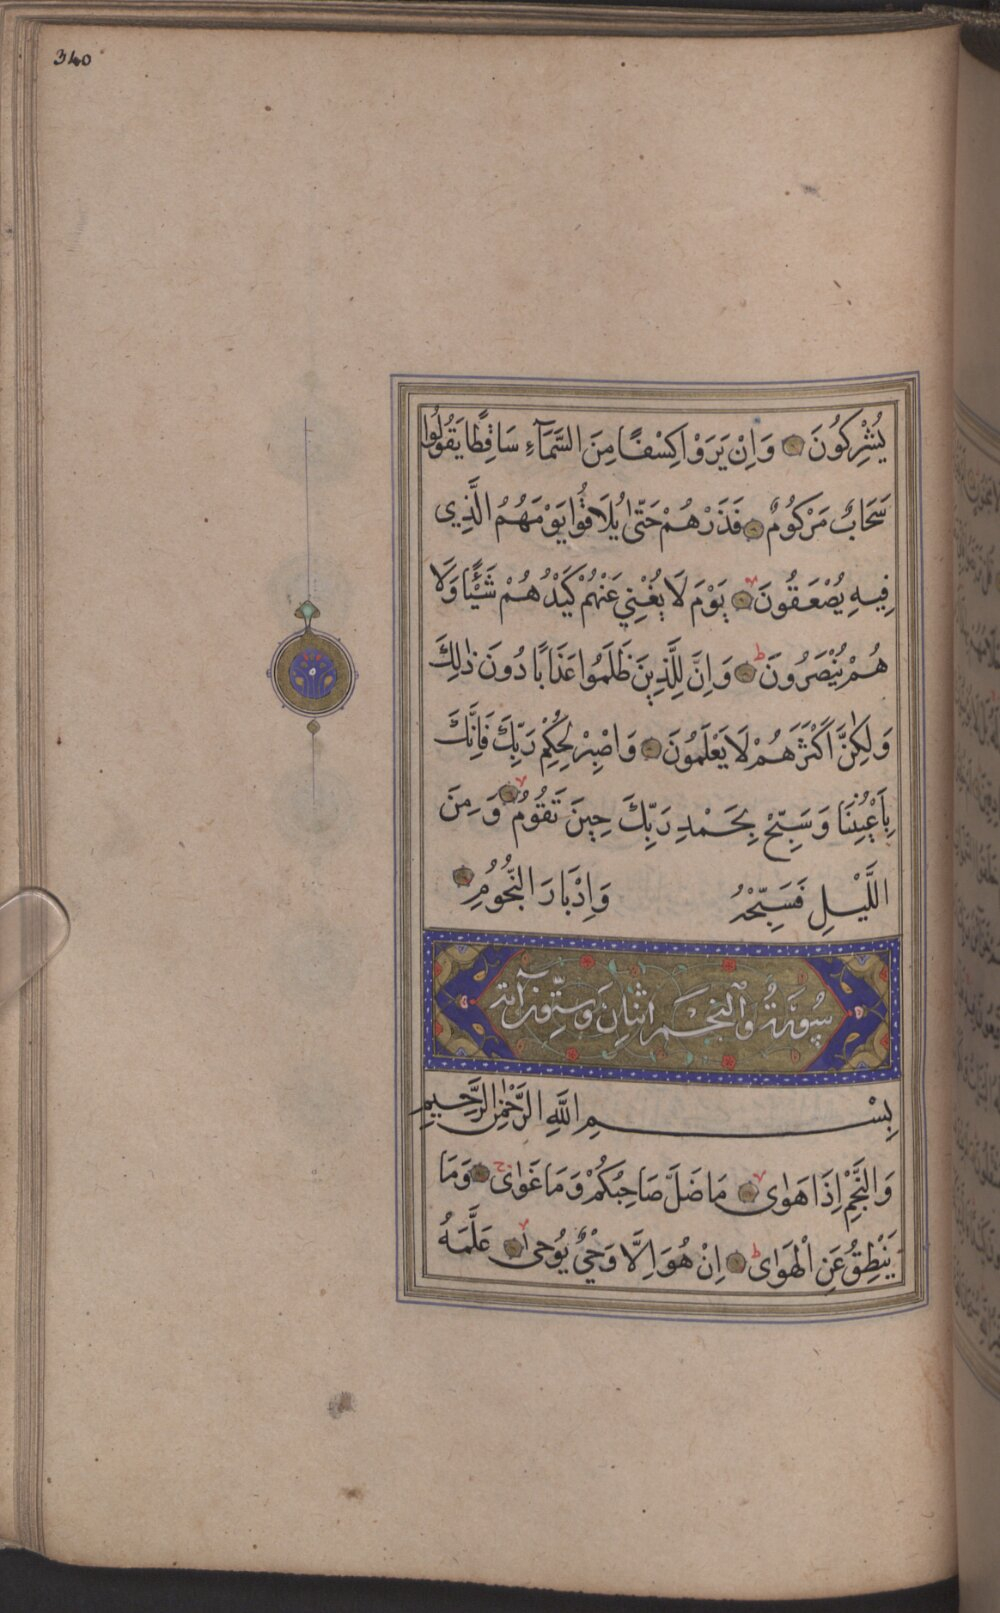 340
يُشْرِكُونَ وَاِنْ يَرَوْا كِسْفًا مِنَ السَّمَآءِ سَاقِطًا يَقُولُوا
سَحَابٌ مَرْكُومٌ فَذَرْهُمْ حَتّٰى يُلَاقُوا يَوْمَهُمُ الَّذِي
فِيهِ يُصْعَقُونَ يَوْمَ لَا يُغْنِي عَنْهُمْ كَيْدُهُمْ شَيْئًا وَلَا
هُمْ يُنْصَرُونَ وَاِنَّ لِلَّذِينَ ظَلَمُوا عَذَابًا دُونَ ذٰلِكَ
وَلٰكِنَّ اَكْثَرَهُمْ لَا يَعْلَمُونَ وَاصْبِرْ لِحُكْمِ رَبِّكَ فَاِنَّكَ
بِاَعْيُنِنَا وَسَبِّحْ بِحَمْدِ رَبِّكَ حِينَ تَقُومُ وَمِنَ
اللَّيْلِ فَسَبِّحْهُ وَاِدْبَارَ النُّجُومِ
سُورَةُ وَالنجم اثنان وَستّون آية
بِسْمِ اللّٰهِ الرَّحْمٰنِ الرَّحِيمِ
وَالنَّجْمِ اِذَا هَوٰى مَا ضَلَّ صَاحِبُكُمْ وَمَا غَوٰى وَمَا
يَنْطِقُ عَنِ الْهَوٰى اِنْ هُوَ اِلَّا وَحْيٌ يُوحٰى عَلَّمَهُ